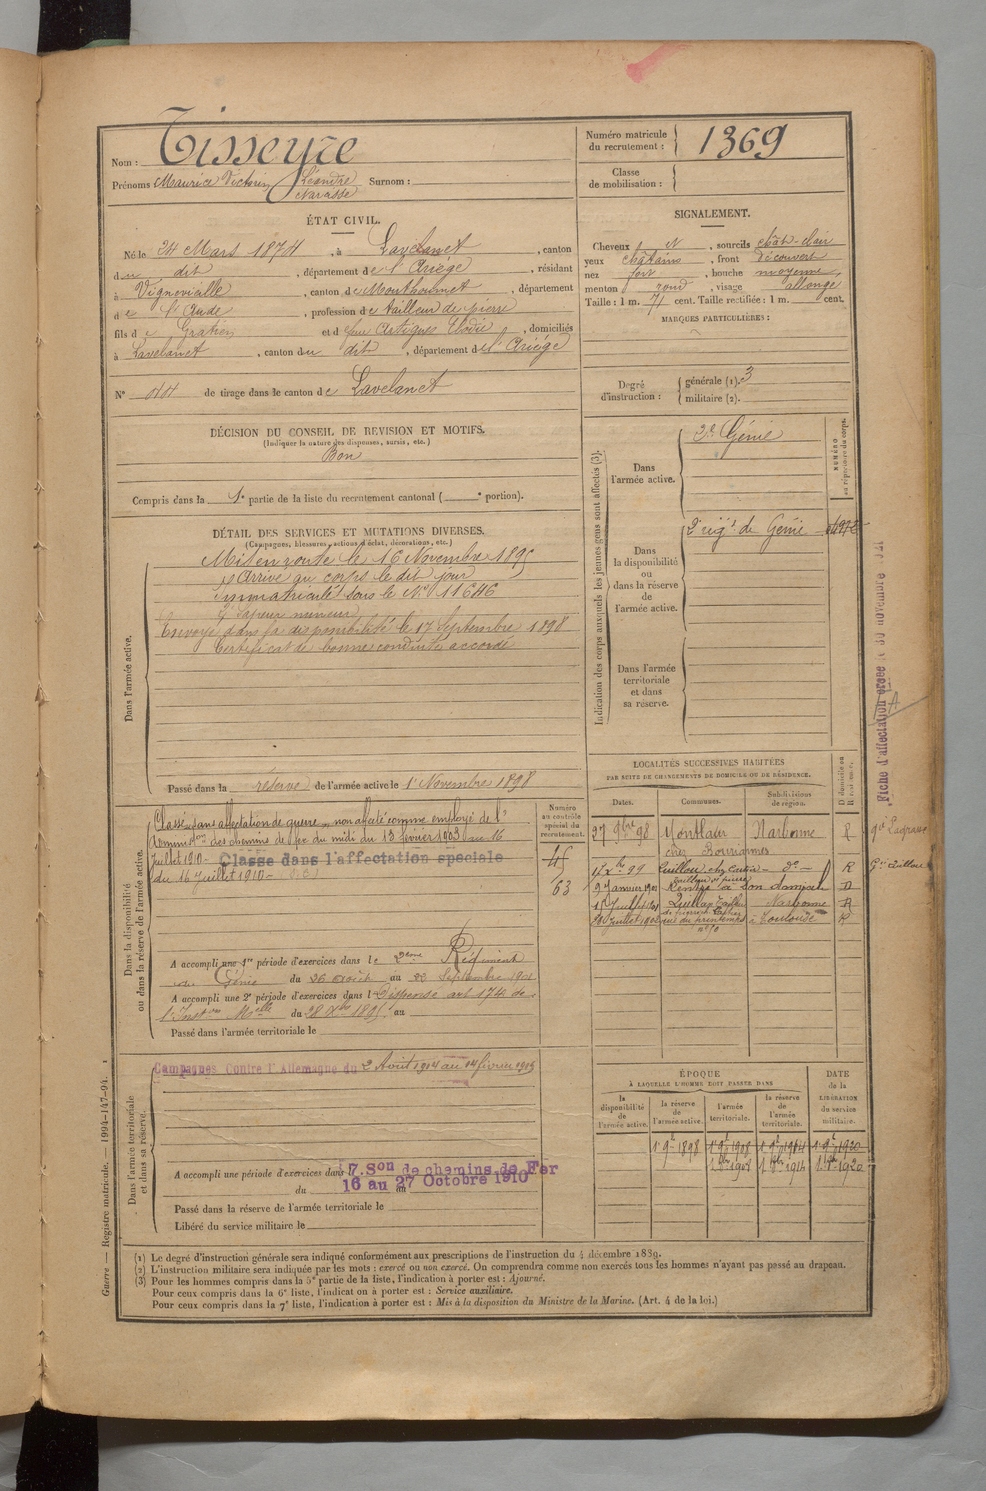 Nom : Tisseyre
Prénoms Maurice Victorin Léandre Surnom :
Narcisse
Numéro matricule
du recrutement : 1369
Classe
de mobilisation :
ÉTAT CIVIL.
Né le 24 Mars 1874, à Lavelanet, canton
du dit, département de l'Ariége, résidant
à Vignevieille, canton de Mouthoumet, département
de l'Aude, profession de tailleur de pierre
fils de Gratien et de feue Artigues Elodie, domiciliés
à Lavelanet, canton du dit, département de l'Ariége
N° 44 de tirage dans le canton de Lavelanet
SIGNALEMENT.
Cheveux et, sourcils chât-clair
yeux châtains, front découvert
nez fort, bouche moyenne
menton rond, visage allongé
Taille : 1 m. 71 cent. Taille rectifiée : 1 m. cent.
MARQUES PARTICULIÈRES :
Degré
d'instruction :
générale (1). 3
militaire (2).
DÉCISION DU CONSEIL DE REVISION ET MOTIFS.
(Indiquer la nature des dispenses, sursis, etc.)
Bon
Compris dans la 1e partie de la liste du recrutement cantonal ( e portion).
Indication des corps auxquels les jeunes gens sont affectés (3).
NUMÉRO
au répertoire du corps.
Dans
l'armée active.
2e Génie
Dans
la disponibilité
ou
dans la réserve
de
l'armée active.
2e régt de Génie
Dans l'armée
territoriale
et dans
sa réserve.
Fiche d'affectation créée le 30 novembre 1921
DÉTAIL DES SERVICES ET MUTATIONS DIVERSES.
(Campagnes, blessures, actions d'éclat, décorations, etc.)
Dans l'armée active.
Mis en route le 16 Novembre 1895
Arrivé au corps le dit jour
Immatriculé sous le N° 11646
Sapeur mineur
Envoyé dans la disponibilité le 17 Septembre 1898
Certificat de bonne conduite accordé
Passé dans la réserve de l'armée active le 1 Novembre 1898
Dans la disponibilité
ou dans la réserve de l'armée active.
Classé dans affectation de guerre, non affecté comme employé de l'
Adminton des chemins de fer du midi du 13 février 1903 au 16
Juillet 1910 - Classé dans l'affectation spéciale
du 16 Juillet 1910 -
Numéro
au contrôle
spécial du
recrutement.
45
63
A accompli une 1re période d'exercices dans le 2eme Régiment
du Génie du 26 août au 22 Septembre 1901
A accompli une 2e période d'exercices dans l Dispensé art 174 de
l'Inston Melle du 28 Xbre 1895 au
Passé dans l'armée territoriale le
LOCALITÉS SUCCESSIVES HABITÉES
PAR SUITE DE CHANGEMENTS DE DOMICILE OU DE RÉSIDENCE.
Dates. Communes. Subdivisions
de région.
27 9bre 98 Montlaur Narbonne R
Xbre 99 Quillan do R
9 Janvier 1901 Rentré à son domicile D
15 Juillet 1901 Quillan Narbonne R
Juillet 1902 rue du printemps Toulouse R
Dans l'armée territoriale
et dans sa réserve.
Campagnes Contre l'Allemagne du 2 Août 1914 au 14 février 1919
A accompli une période d'exercices dans l 7. Son de chemins de Fer
du 16 au 27 Octobre 1910
Passé dans la réserve de l'armée territoriale le
Libéré du service militaire le
ÉPOQUE
À LAQUELLE L'HOMME DOIT PASSER DANS
DATE
de la
LIBÉRATION
du service
militaire.
la
disponibilité
de
l'armée active.
la réserve
de
l'armée active.
l'armée
territoriale.
la réserve
de
l'armée
territoriale.
1 9bre 1898 1 9bre 1908 1 9bre 1914 1 9bre 1920
1 8bre 1908 1 8bre 1914 1 8bre 1920
(1) Le degré d'instruction générale sera indiqué conformément aux prescriptions de l'instruction du 4 décembre 1889.
(2) L'instruction militaire sera indiquée par les mots : exercé ou non exercé. On comprendra comme non exercés tous les hommes n'ayant pas passé au drapeau.
(3) Pour les hommes compris dans la 5e partie de la liste, l'indication à porter est : Ajourné.
Pour ceux compris dans la 6e liste, l'indication à porter est : Service auxiliaire.
Pour ceux compris dans la 7e liste, l'indication à porter est : Mis à la disposition du Ministre de la Marine. (Art. 4 de la loi.)
Guerre — Registre matricule. — 1994-147-94.